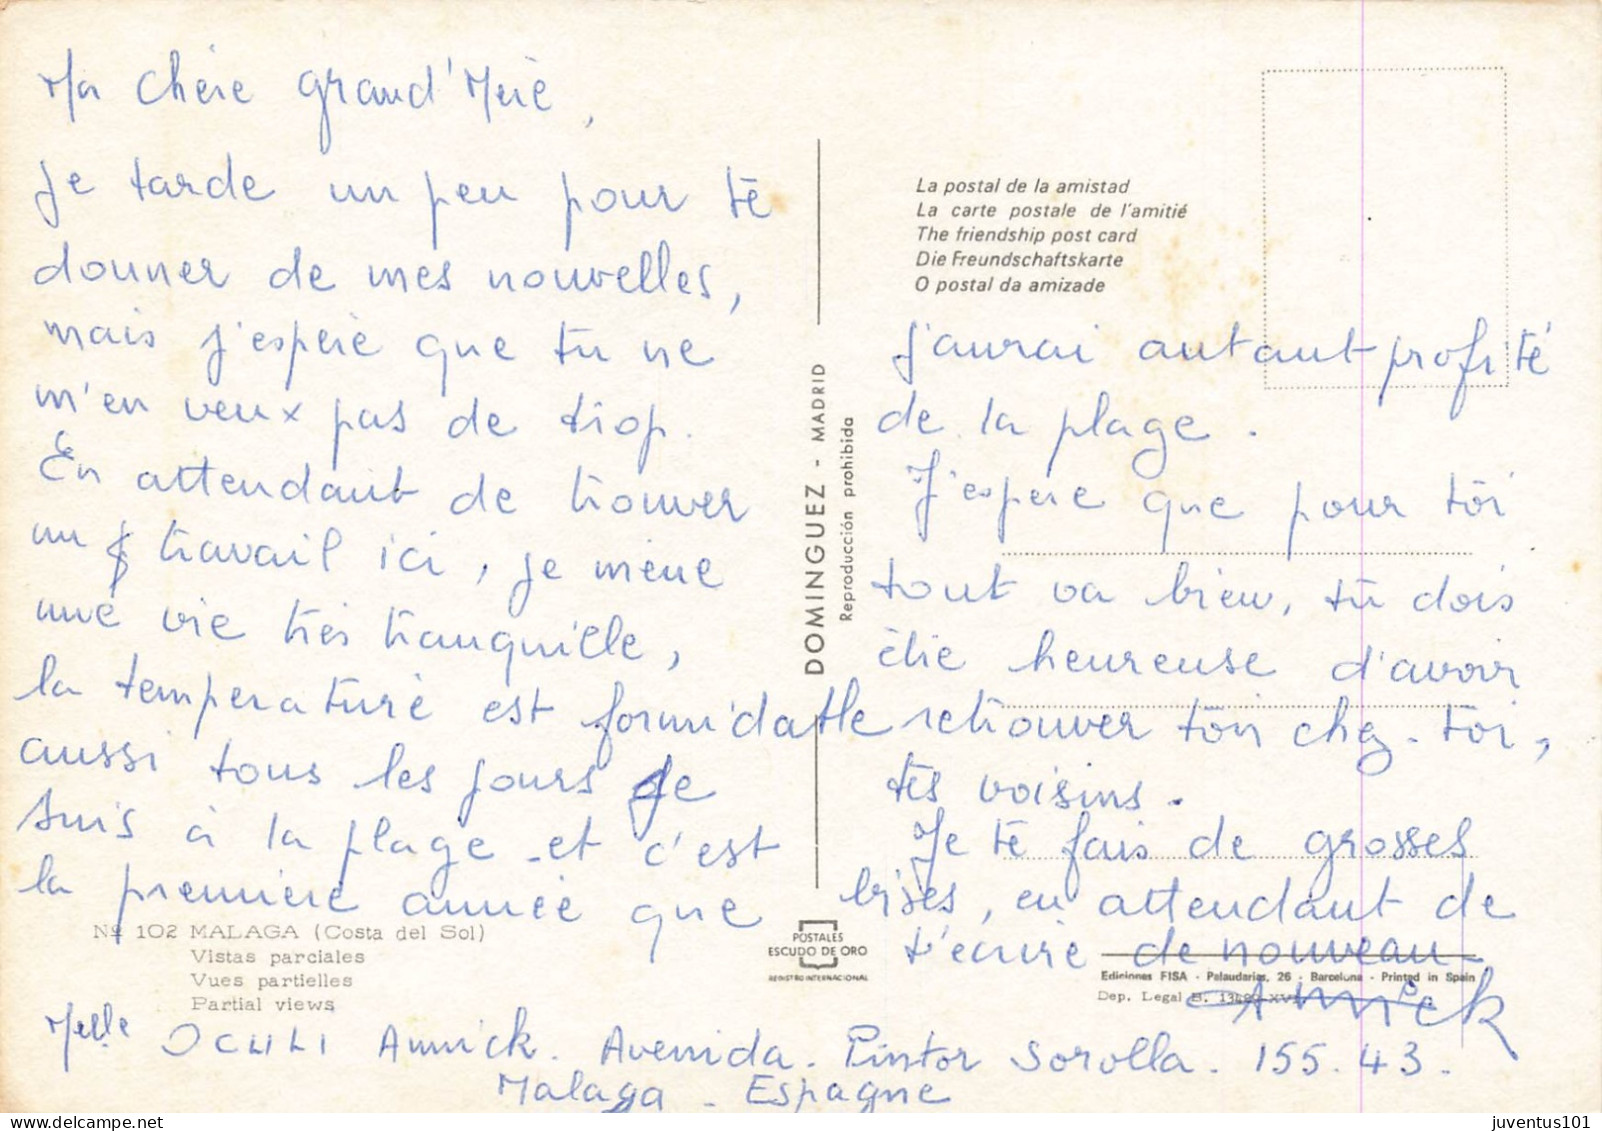 Ma chère grand'Mère,
je tarde un peu pour te
donner de mes nouvelles,
mais j'espère que tu ne
m'en veux pas de trop.
En attendant de trouver
un travail ici, je mène
une vie très tranquille,
la temperature est formidable
aussi tous les jours je
suis à la plage et c'est
la première année que
j'aurai autant profité
de la plage.
J'espère que pour toi
tout va bien, tu dois
être heureuse d'avoir
retrouver ton chez-toi,
tes voisins.
Je te fais de grosses
bises, en attendant de
t'écrire de nouveau
Annick
Melle Annick. Avenida. Pintor Sorolla. 155.43.
Malaga - Espagne
La postal de la amistad
La carte postale de l'amitié
The friendship post card
Die Freundschaftskarte
O postal da amizade
DOMINGUEZ - MADRID
Reproducción prohibida
Nº 102 MALAGA (Costa del Sol)
Vistas parciales
Vues partielles
Partial views
POSTALES
ESCUDO DE ORO
REGISTRO INTERNACIONAL
Ediciones FISA - Palaudarias, 26 - Barcelona - Printed in Spain
Dep. Legal B.
juventus101